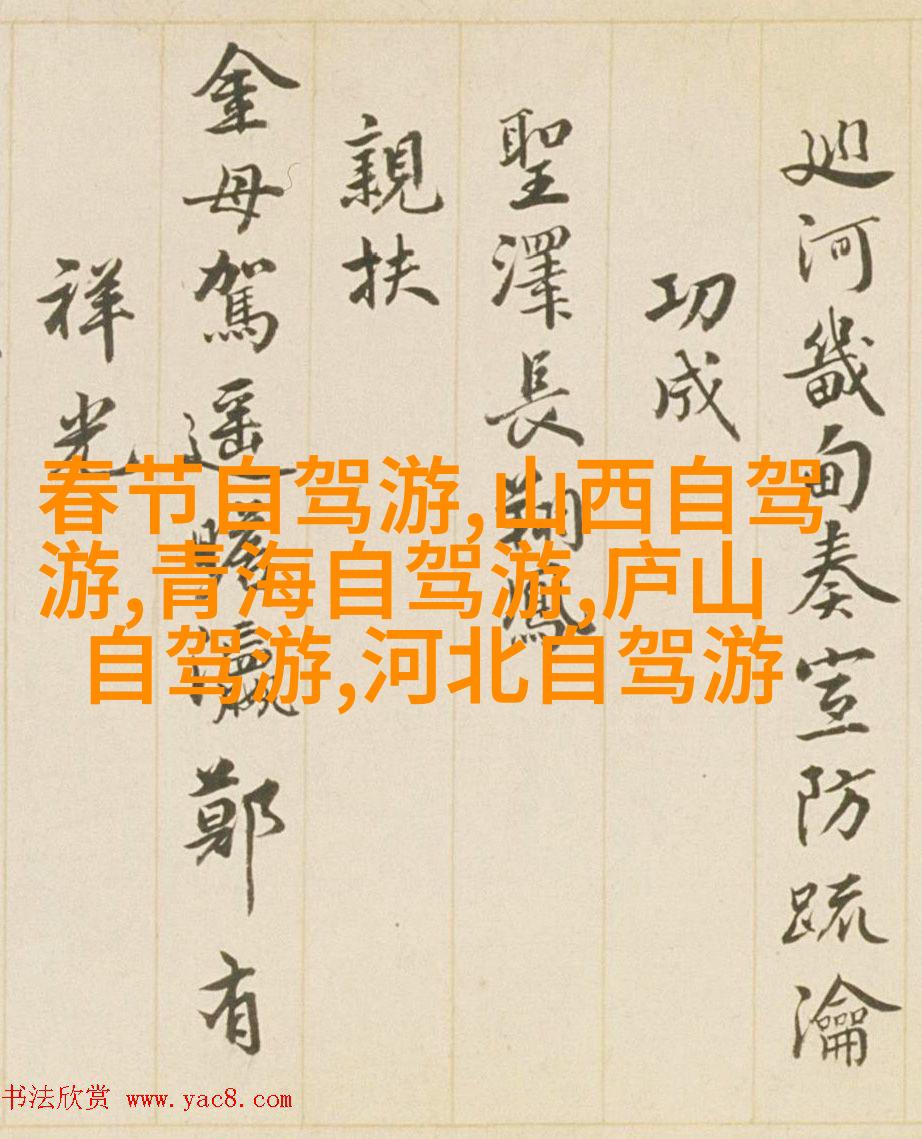 廵河畿甸奏宣防疏瀹
功成
聖澤長翔鳳
親扶
金母駕遥瞻瀛鄭有
祥光
春节自驾游,山西自驾
游,青海自驾游,庐山
自驾游,河北自驾游
书法欣赏 www.yac8.com